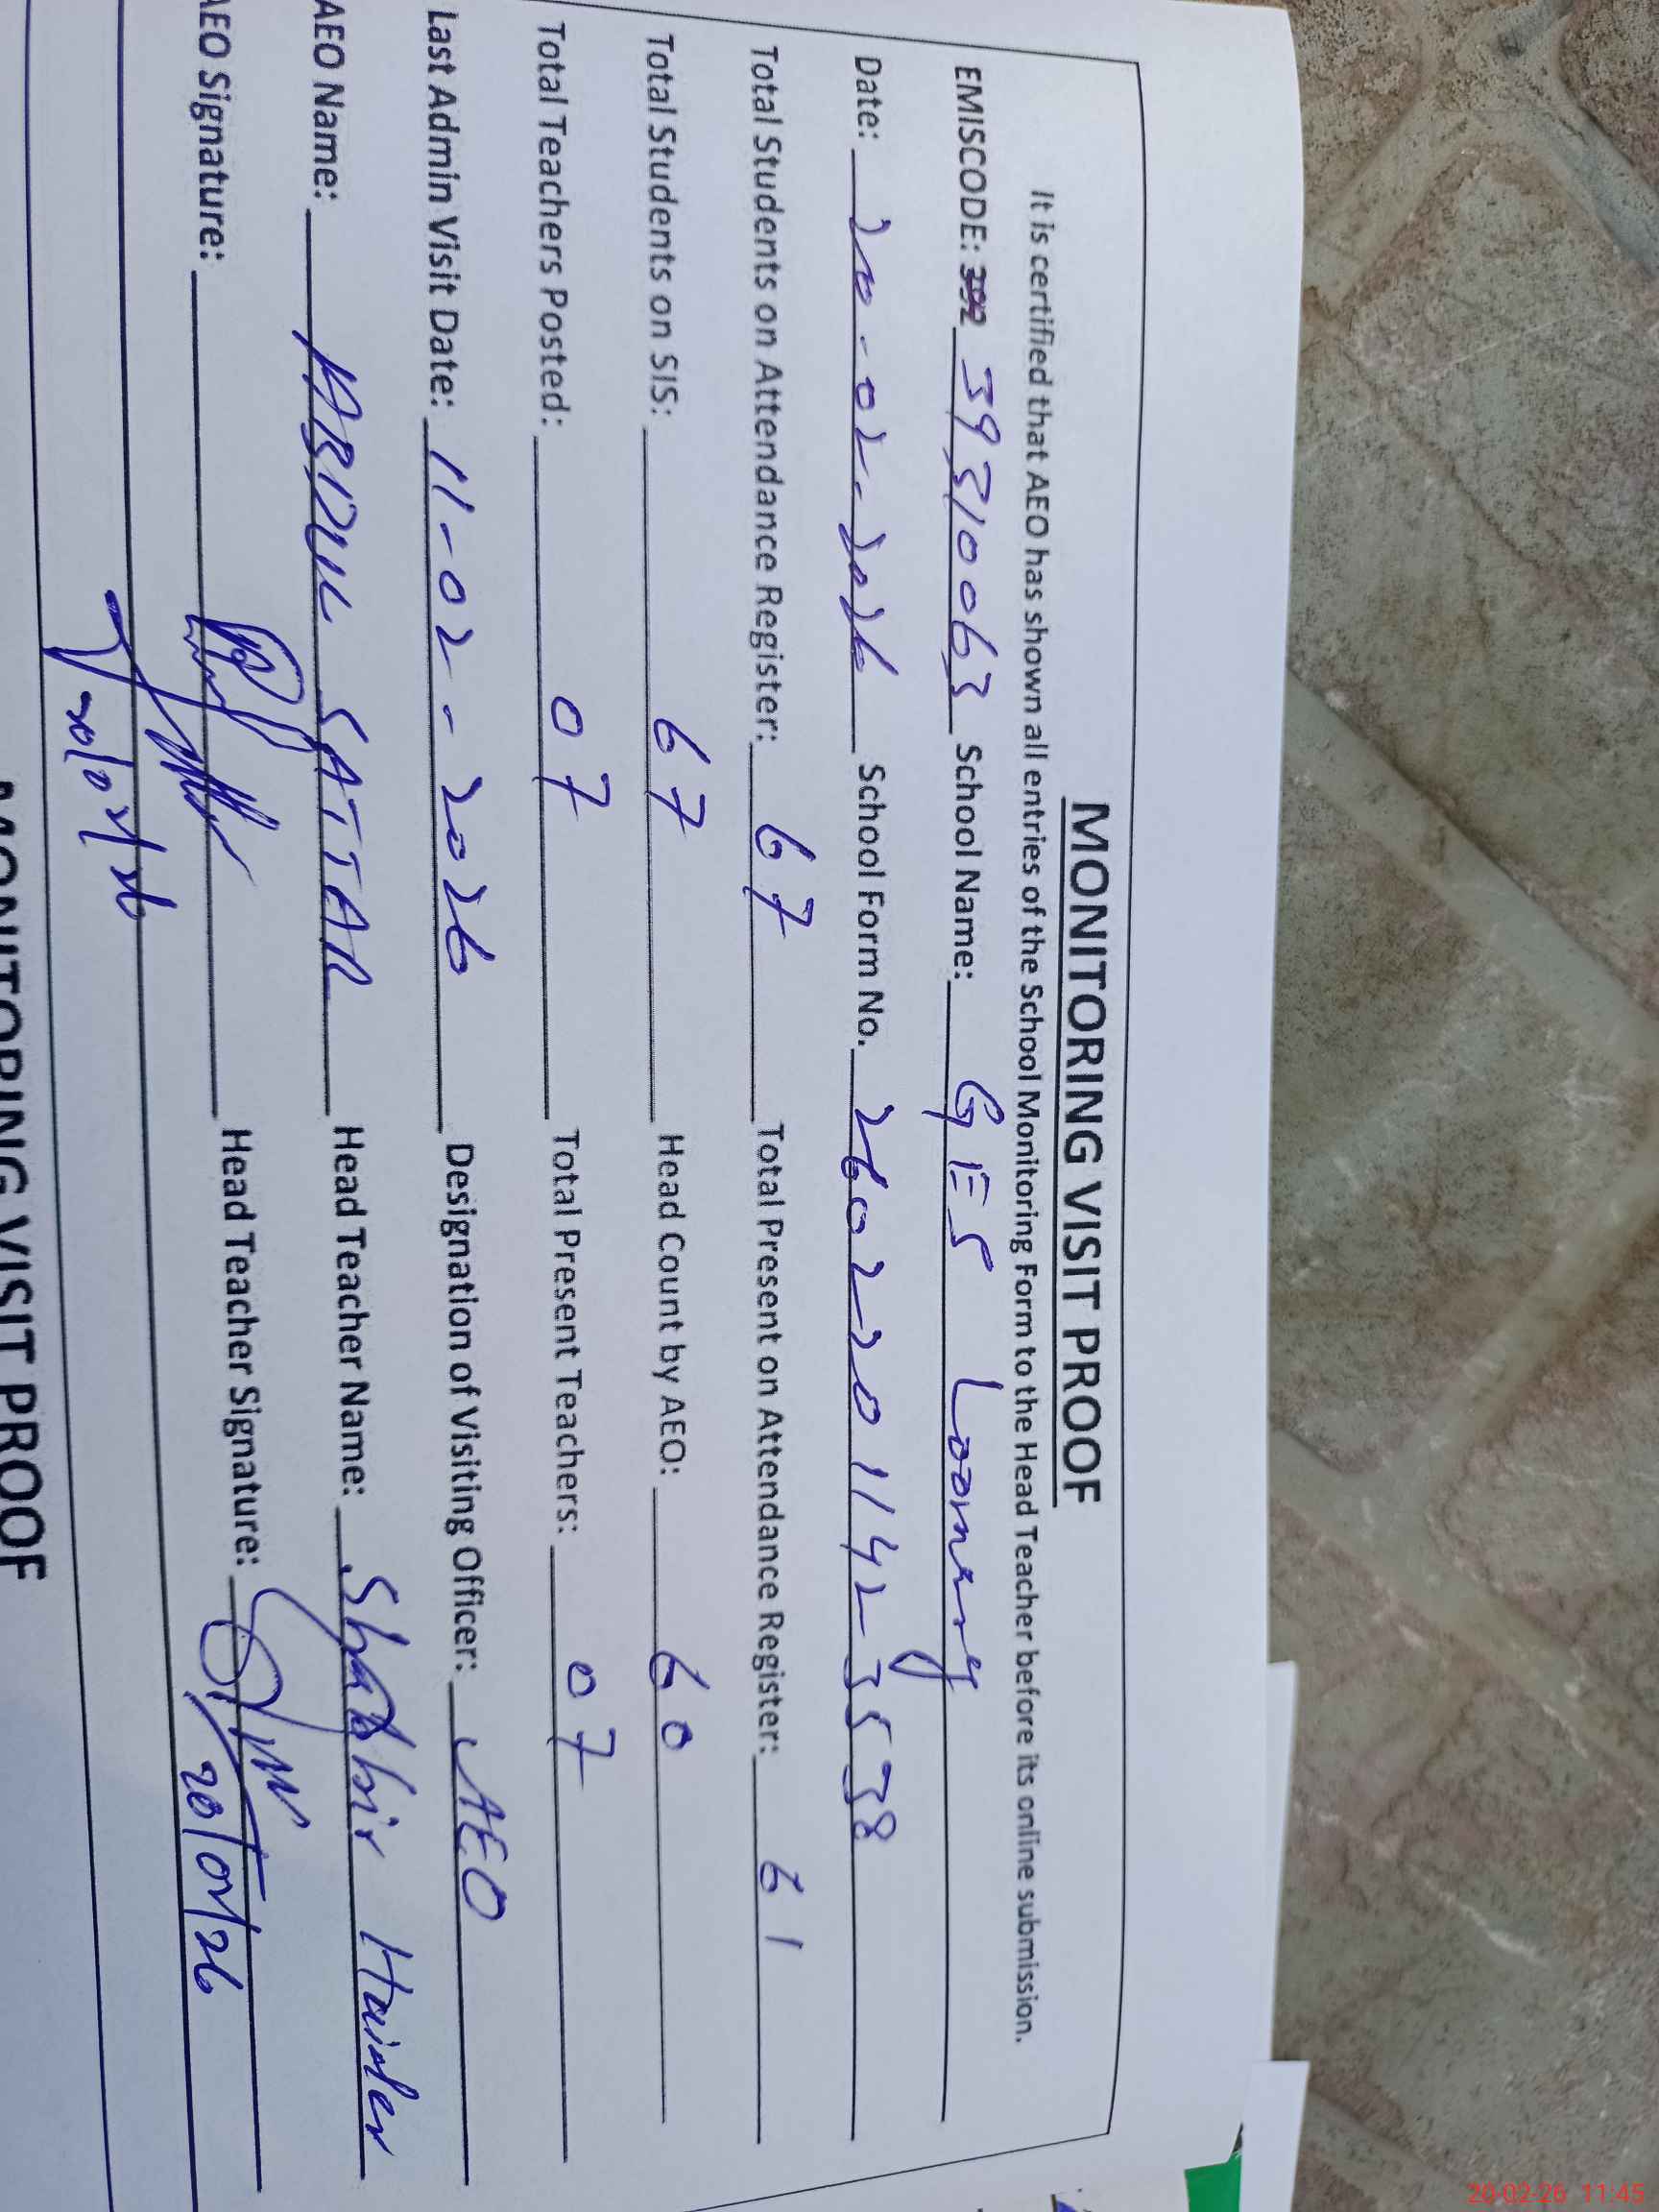 MONITORING VISIT PROOF
It is certified that AEO has shown all entries of the School Monitoring Form to the Head Teacher before its online submission.
EMISCODE: 39310063 School Name: GES Loomery
Date: 20-02-2026 School Form No. 26022011423538
Total Students on Attendance Register: 67 Total Present on Attendance Register: 61
Total Students on SIS: 67 Head Count by AEO: 60
Total Teachers Posted: 07 Total Present Teachers: 07
Last Admin Visit Date: 11-02-2026 Designation of Visiting Officer: AEO
AEO Name: ABDUL SATTAR Head Teacher Name: Shabbir Haider
AEO Signature: Head Teacher Signature:
20/02/26 20/02/26
MONITORING VISIT PROOF
20-02-26 11:45